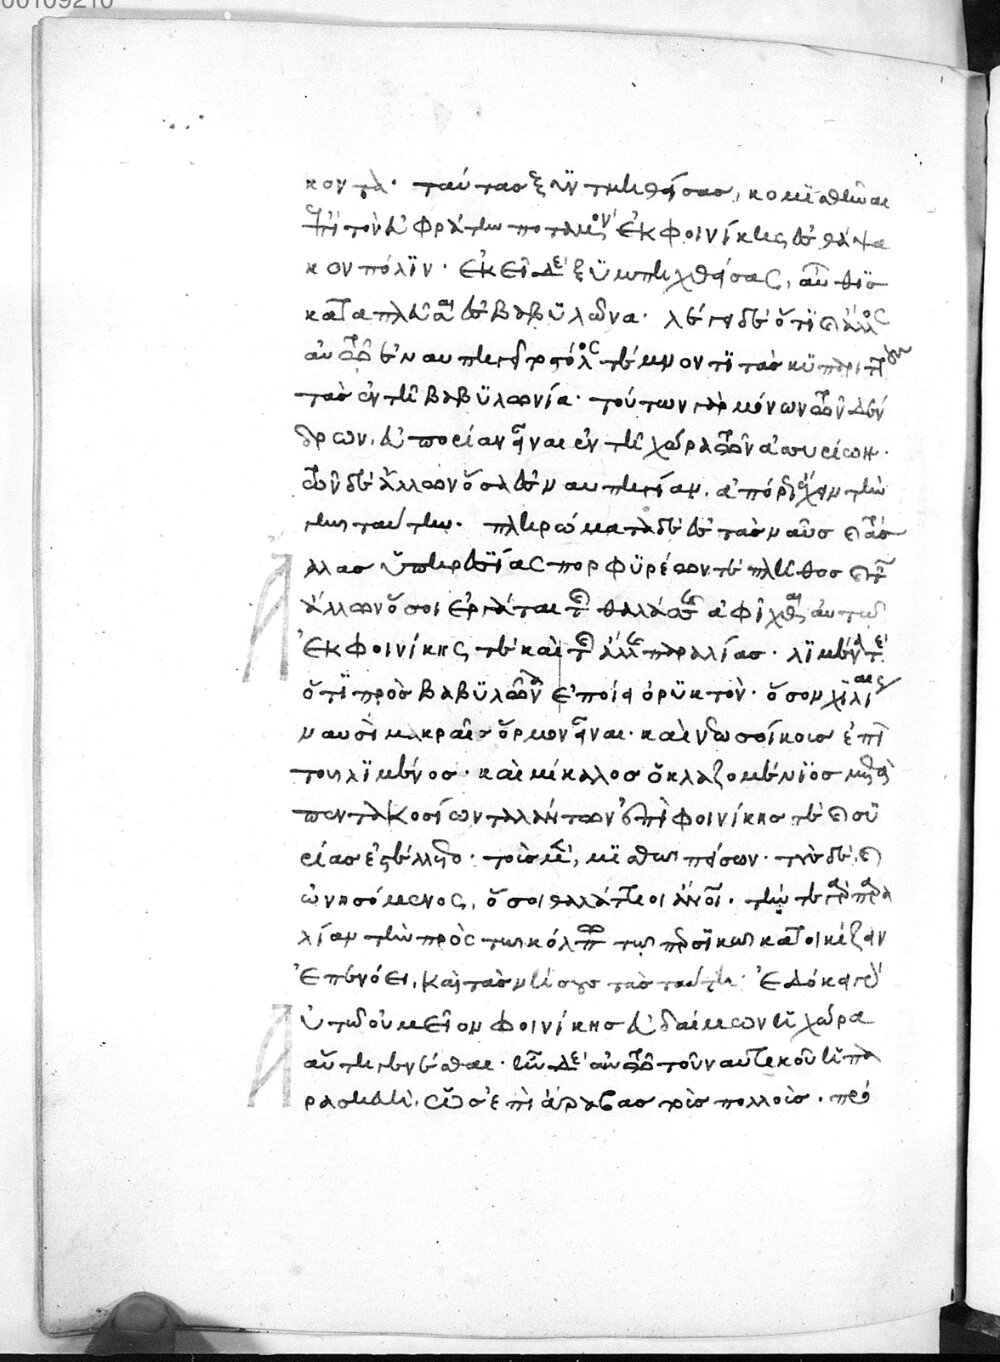 κοντα· ταύτας ξυντμηθήσας, κομισθῆναι
ἐπὶ τὸν εὐφράτην ποταμὸν ἐκ φοινίκης ἐς θάψα
κον πόλιν· ἐκεῖ δὲ ξυμπηχθήσας, αὖθις
καταπλεῦσαι ἐς βαβυλῶνα· λέγει δὲ ὅτι καὶ ἄλλος
αὐτῷ ἐναυπηγεῖτο στόλος τέμνοντι τὰς κυπαρίττους
τὰς ἐν τῇ βαβυλωνία· τούτων γὰρ μόνων τῶν δέν
δρων, εὐπορίαν εἶναι ἐν τῇ χώρα τῶν ἀσσυρίων·
τῶν δὲ ἄλλων ὅσα ἐς ναυπηγίαν, ἀπόρως ἔχειν τὴν
γῆν ταύτην· πλήρωμα τὰ δὲ ἐς τὰς ναῦς καὶ τὰς
ἄλλας ὑπηρεσίας πορφυρέων τε πλῆθος καὶ τῶν
ἄλλων ὅσοι ἐργάται τῆς θαλάσσης ἀφῖχθαι αὐτῷ
ἐκ φοινίκης τε καὶ τῆς ἄλλης παραλίας· λιμένα τε
ὅτι πρὸς βαβυλῶνα ἐποίει ὀρυκτὸν· ὅσον χιλίαις
ναυσὶ μακραῖς ὅρμον εἶναι· καὶ νεωσοίκους ἐπὶ
τοῦ λιμένος· καὶ μίκαλος ὁ κλαζομένιος μετὰ
πεντακοσίων ταλάντων ἐπὶ φοινίκης τε καὶ συ
ρίας ἐστέλλετο· τοὺς μὲν, μισθῷ πείσων· τοὺς δὲ, καὶ
ὠνησόμενος, ὅσοι θαλάττιοι ἄνθρωποι· τήν τε γὰρ παρα
λίαν τὴν πρὸς τῷ κόλπῳ τῷ περσικῷ κατοικίζειν
ἐπενόει, καὶ τὰς νήσους τὰς ταύτῃ· ἐδόκει γὰρ
αὐτῷ οὐ μεῖον φοινίκης εὐδαίμων ἡ χώρα
αὕτη γενέσθαι· ἦν δὲ αὐτῷ τοῦ ναυτικοῦ ἡ πα
ρασκευὴ, ὡς ἐπὶ ἄραβας τοὺς πολλοὺς· πρό